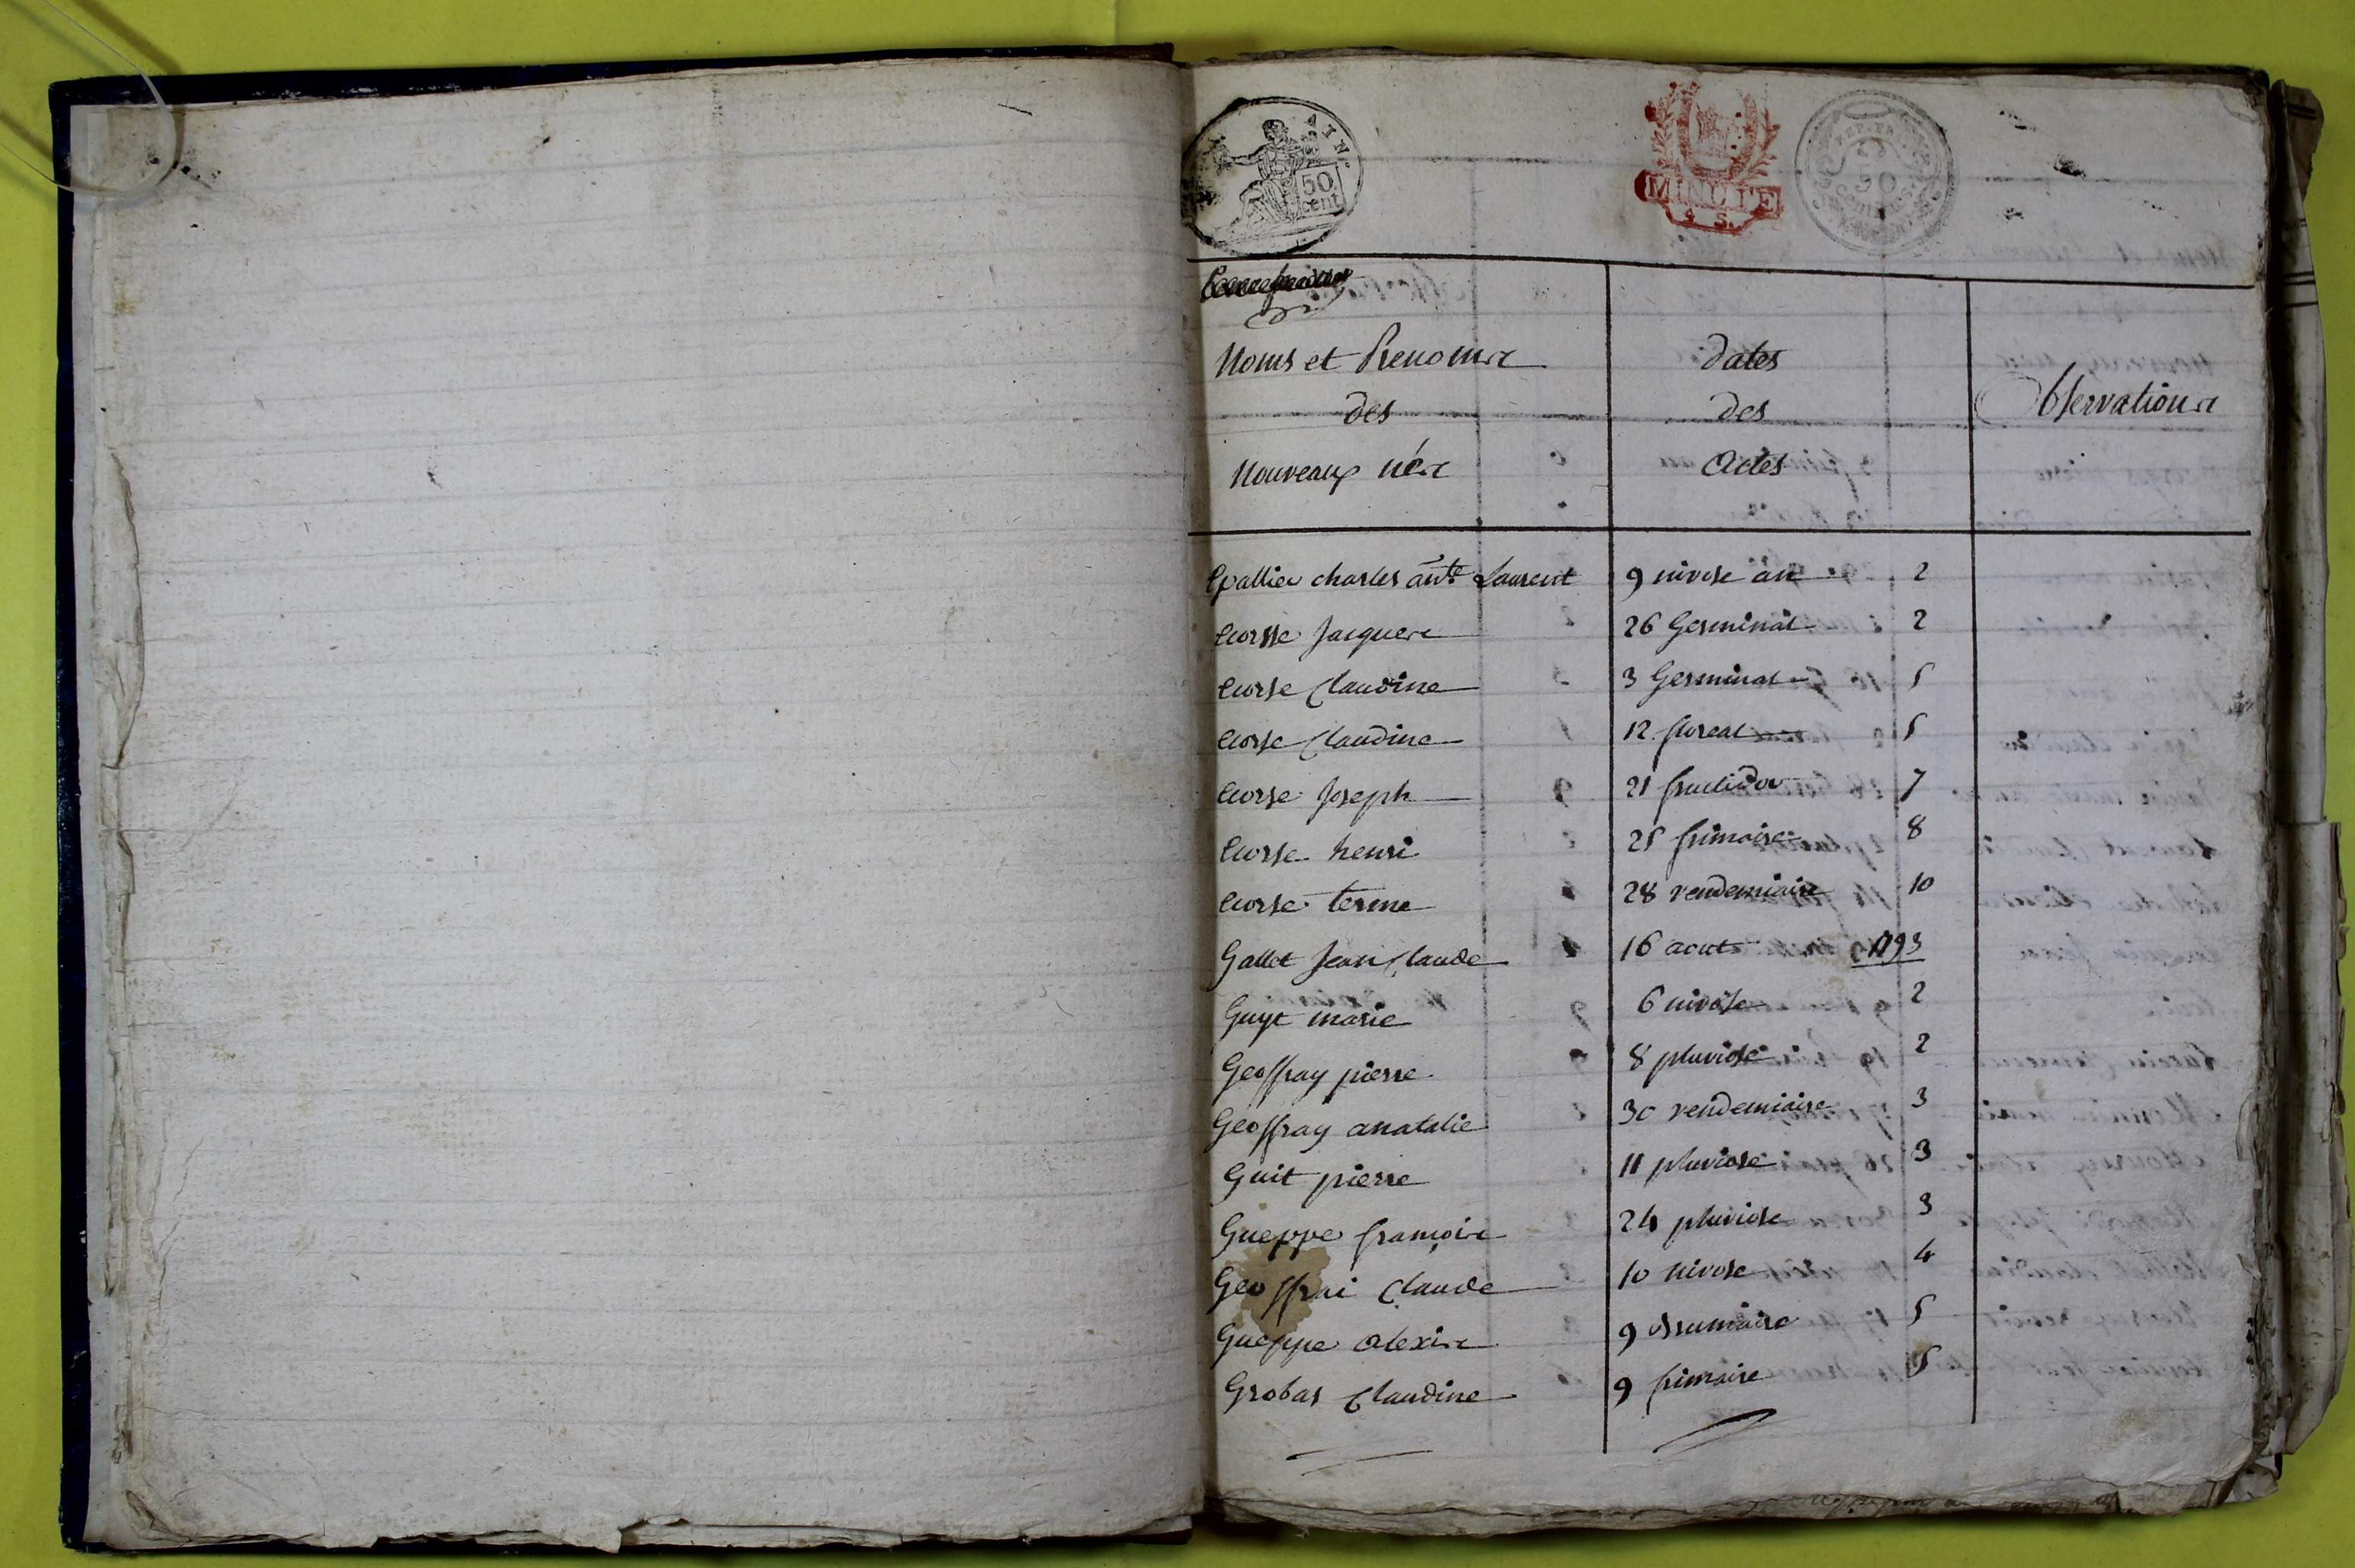 50
cent
MINUTE
4 S.
50
Noms et Prenoms
dates
des
des
Observations
Nouveaux nés
Actes
Epallier charles ant.e Laurent 9 nivose an 2
Ecorsse Jacques 26 Germinal 2
Ecorse Claudine 3 Germinal 5
Ecorse Claudine 12 floreal 5
Ecorse Joseph 21 fructidor 7
Ecorse henri 25 frimaire 8
Ecorse terme 28 vendemiaire 10
Gallet Jean Claude 16 aout 1793
Guyt marie 6 nivose 2
Geoffray pierre 8 pluviose 2
Geoffray anatalie 30 vendemiaire 3
Guit pierre 11 pluviose 3
Gueppe françois 24 pluviose 3
Geoffrai Claude 10 nivose 4
Gueppe alexis 9 brumaire 5
Grobas Claudine 9 frimaire 5